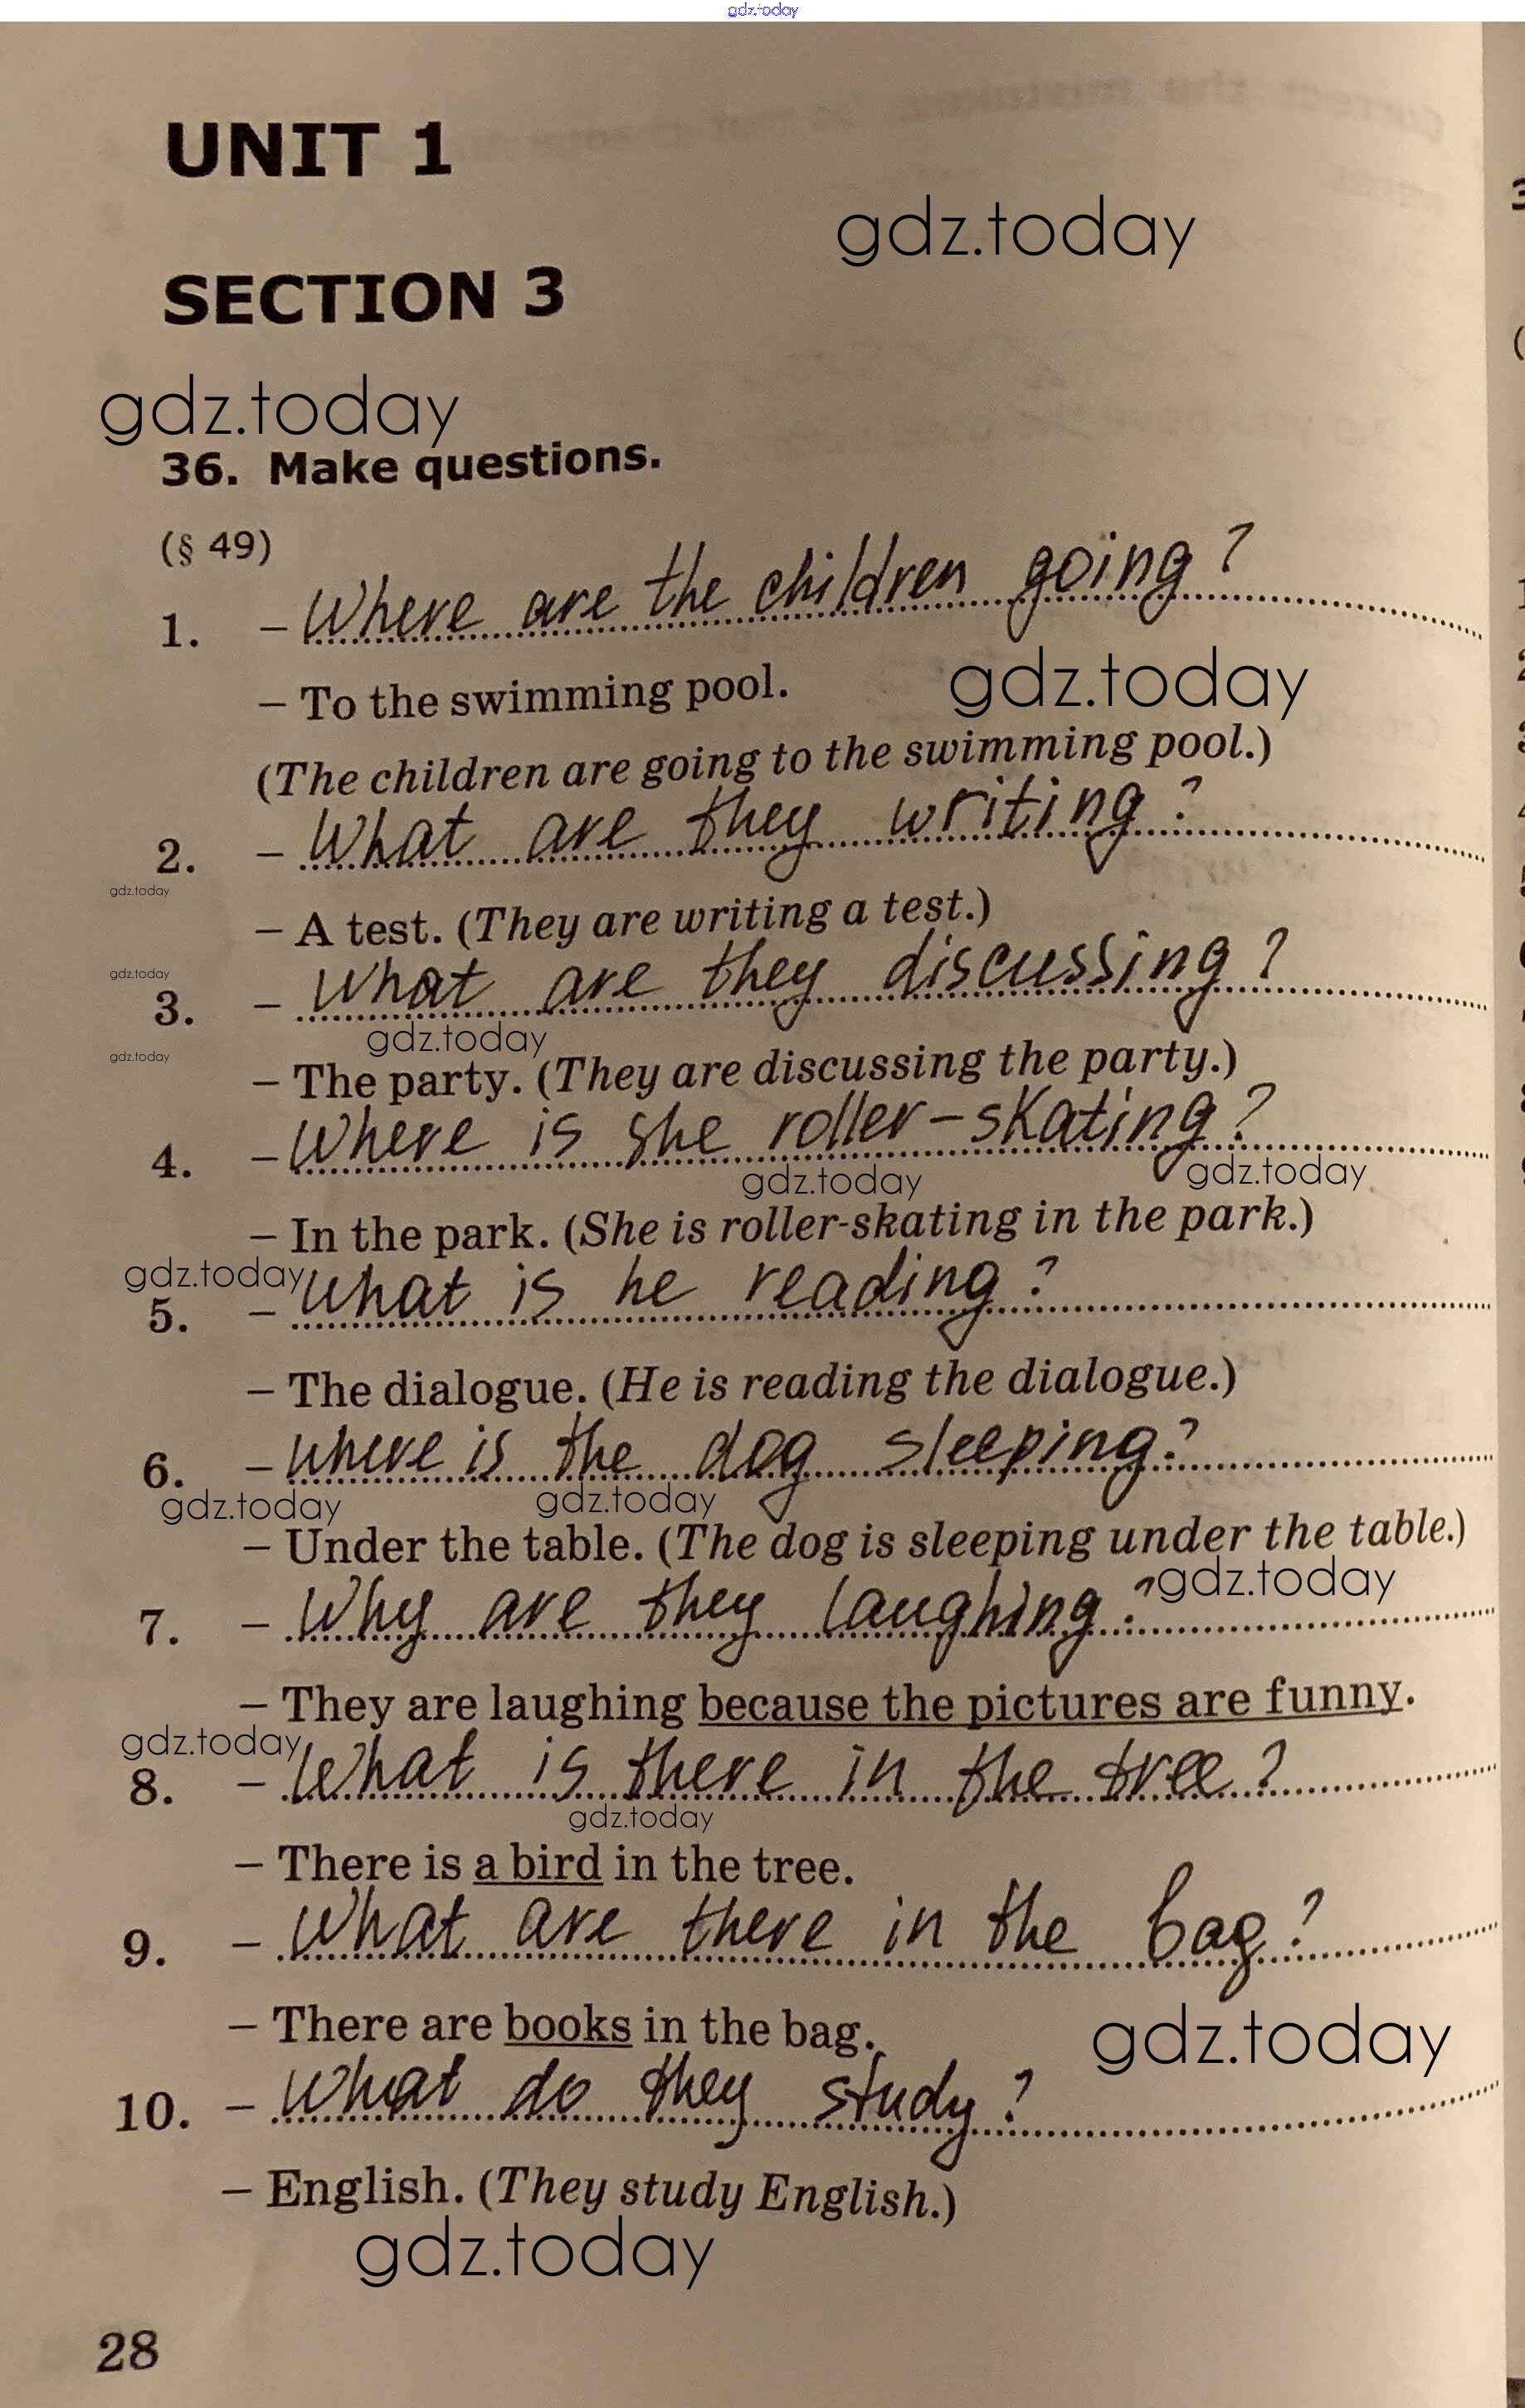 gdz.today
UNIT 1
gdz.today
SECTION 3
gdz.today
36. Make questions.
(§ 49)
1. – Where are the children going?
– To the swimming pool.
gdz.today
(The children are going to the swimming pool.)
2. – What are they writing?
gdz.today
– A test. (They are writing a test.)
gdz.today
3. – What are they discussing?
gdz.today
gdz.today
– The party. (They are discussing the party.)
4. – Where is she roller-skating?
gdz.today gdz.today
– In the park. (She is roller-skating in the park.)
gdz.today
5. – What is he reading?
– The dialogue. (He is reading the dialogue.)
6. – where is the dog sleeping?
gdz.today gdz.today
– Under the table. (The dog is sleeping under the table.)
gdz.today
7. – Why are they laughing?
– They are laughing because the pictures are funny.
gdz.today
8. – What is there in the tree?
gdz.today
– There is a bird in the tree.
9. – What are there in the bag?
– There are books in the bag.
gdz.today
10. – What do they study?
– English. (They study English.)
gdz.today
28